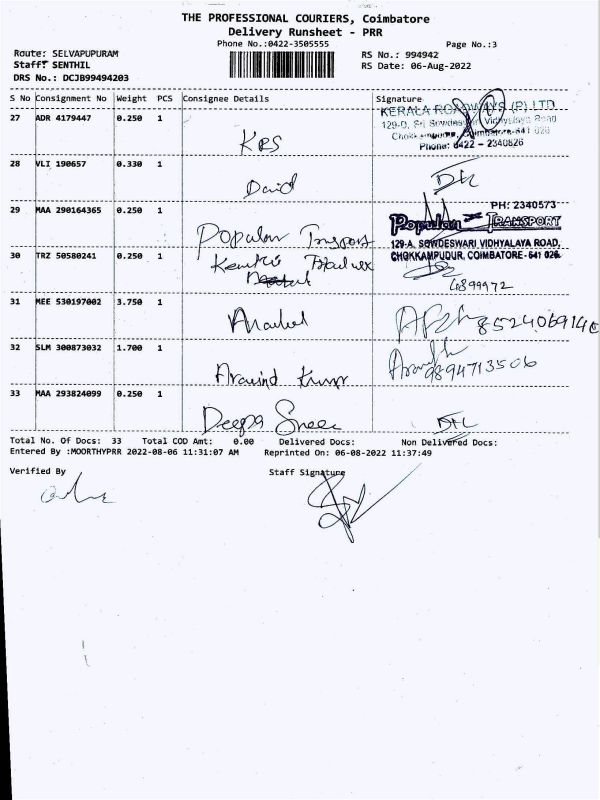 THE PROFESSIONAL COURIERS, Coimbatore
Delivery Runsheet - PRR
Phone No.:0422-3505555
Page No.:3
Route: SELVAPUPURAM
RS No.: 994942
Staff: SENTHIL
RS Date: 06-Aug-2022
DRS No.: DCJB99494203
S No Consignment No Weight PCS Consignee Details Signature
27 ADR 4179447 0.250 1 KRS
KERALA ROADWAYS (P) LTD
129-D, Sri Sowdeswari Vidhyalaya Road
Chokkampudur, Coimbatore-641 026
Phone: 0422 - 2340826
28 VLI 190657 0.330 1 David
29 MAA 290164365 0.250 1 Popular Transport
PH: 2340573
Popular TRANSPORT
129-A, SOWDESWARI VIDHYALAYA ROAD,
CHOKKAMPUDUR, COIMBATORE- 641 026.
30 TRZ 50580241 0.250 1
31 MEE 530197002 3.750 1
32 SLM 300873032 1.700 1 Aravind Kumar
9894713506
33 MAA 293824099 0.250 1 Deepa
Total No. Of Docs: 33 Total COD Amt: 0.00 Delivered Docs: Non Delivered Docs:
Entered By :MOORTHYPRR 2022-08-06 11:31:07 AM Reprinted On: 06-08-2022 11:37:49
Verified By Staff Signature